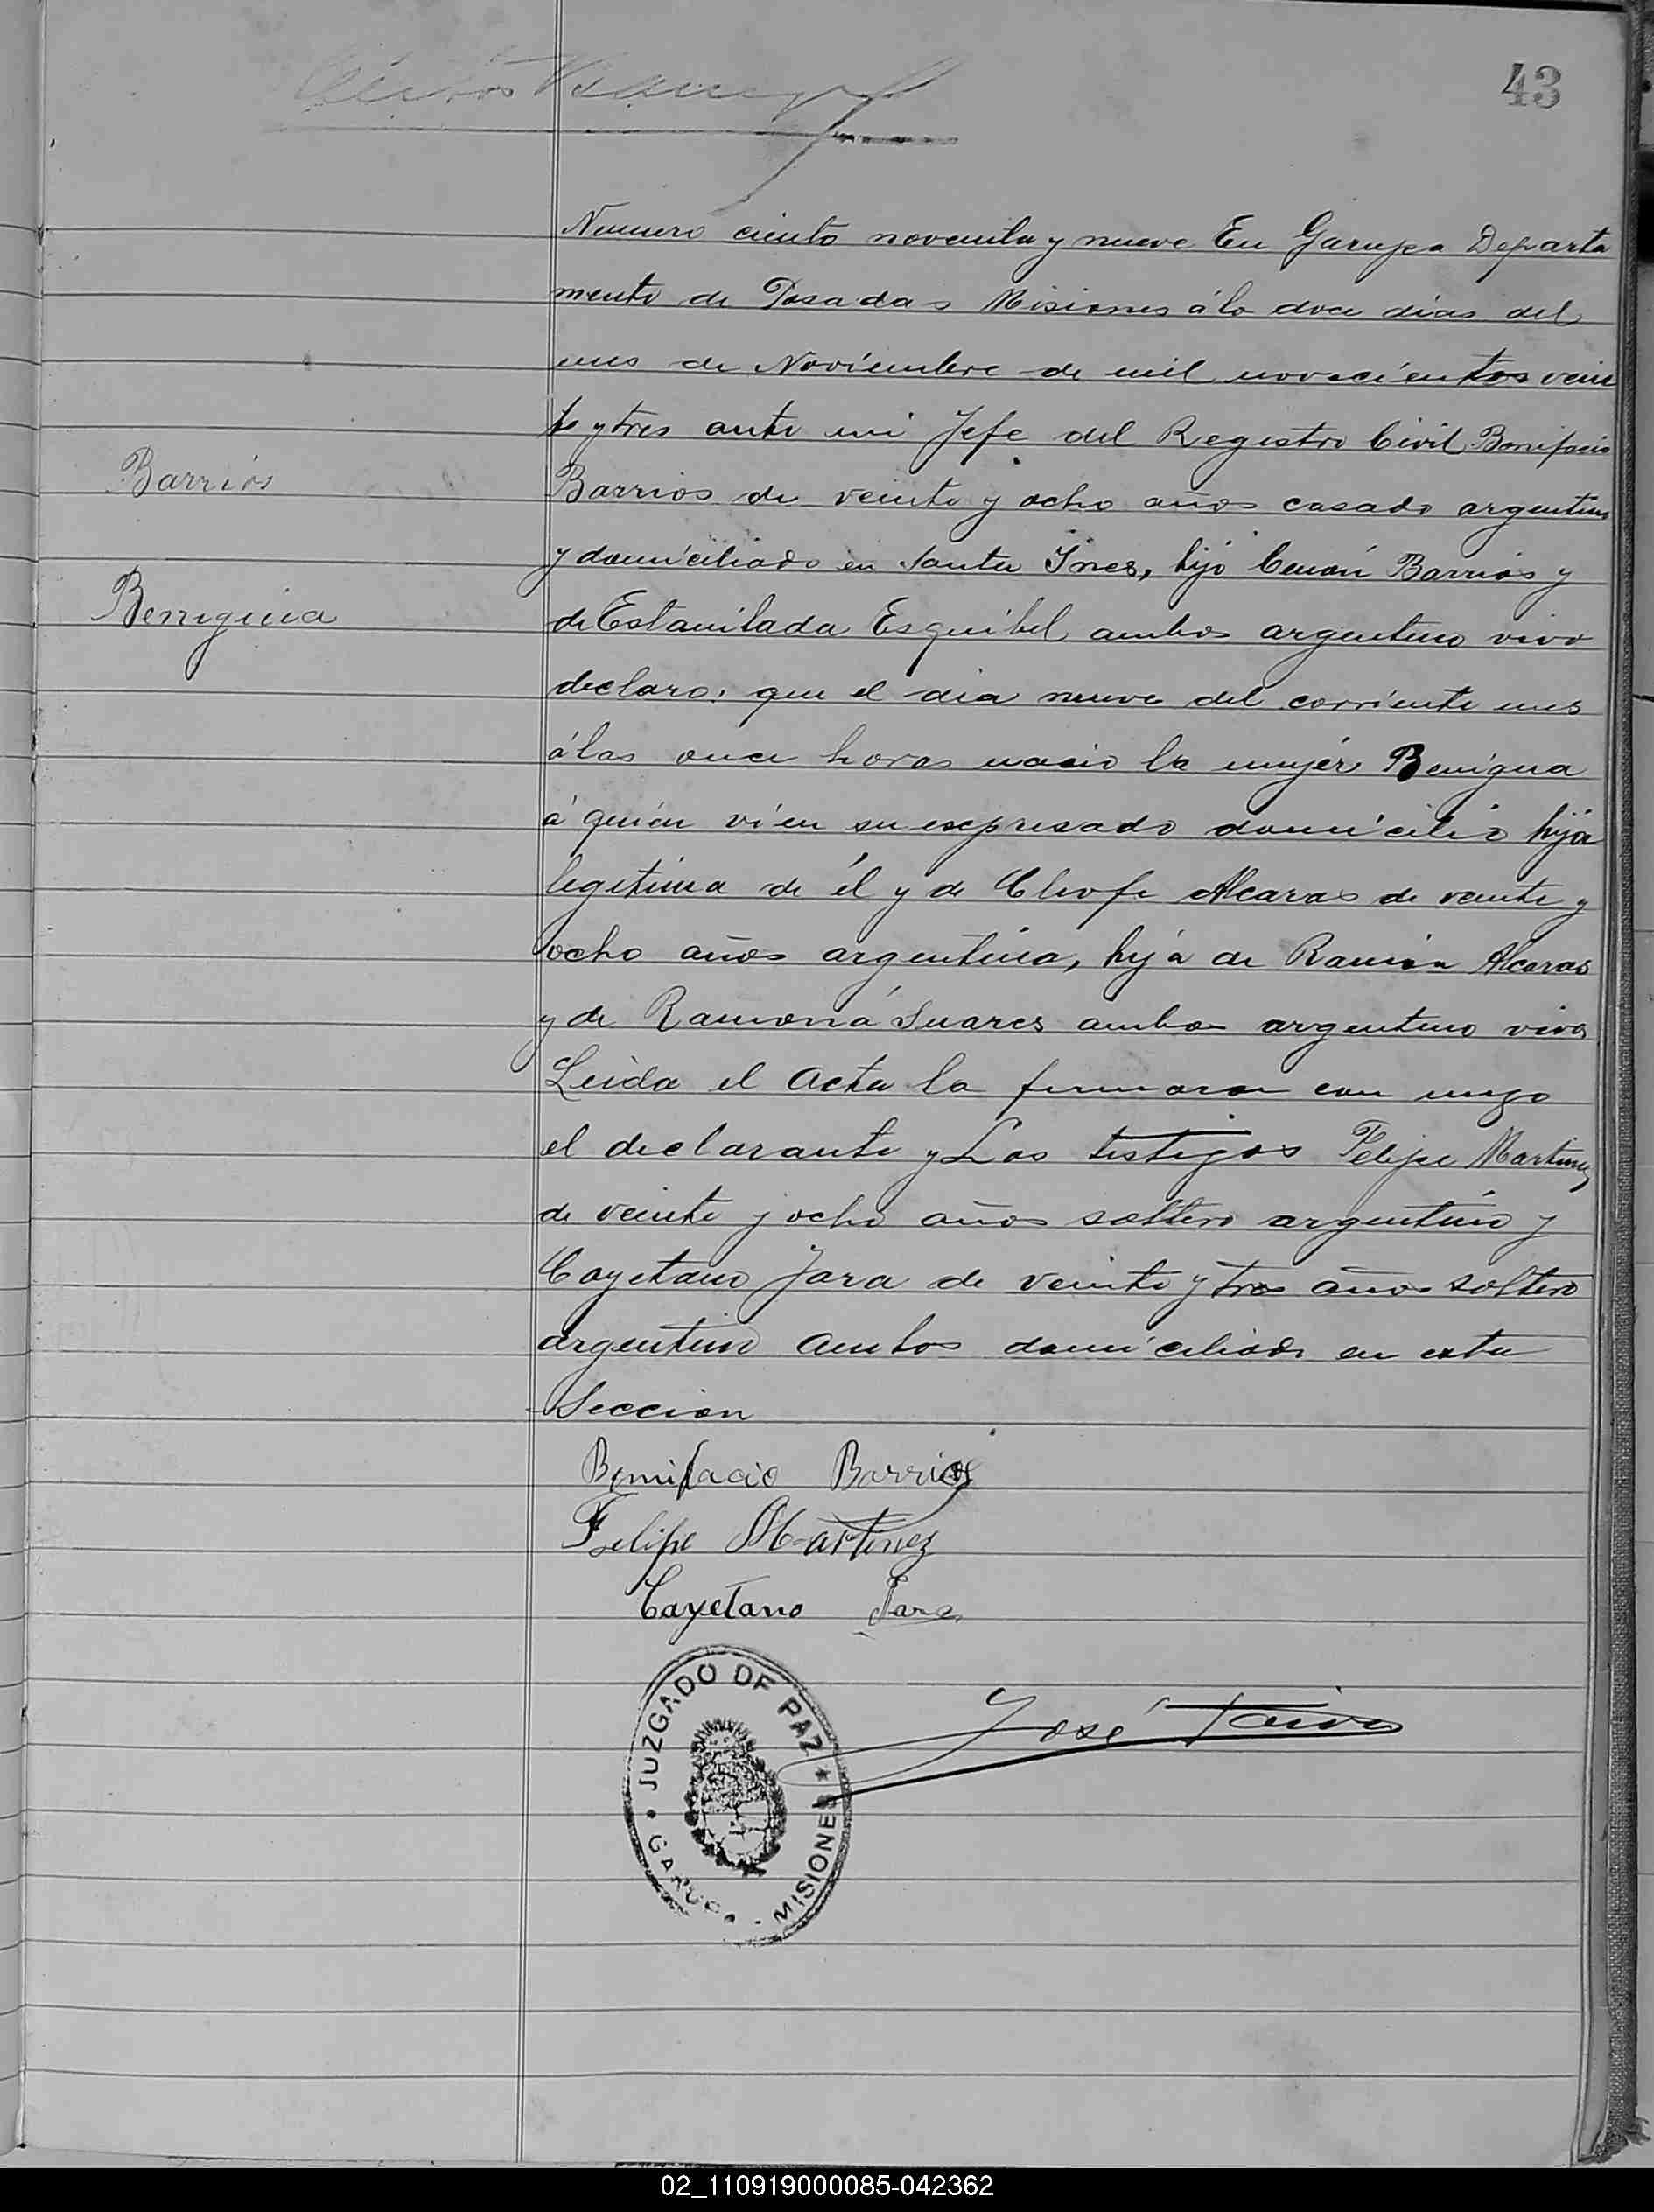 43
Numero ciento noventa y nueve En Garupa Departa
mento de Posadas Misiones á lo doce dias del
mes de Noviembre de mil novecientos vein
te y tres ante mi Jefe del Registro Civil Bonifacio
Barrios
Barrios de veinte y ocho años casado argentino
y domiciliado en Santa Ines, hijo Cenón Barrios y
Benigna
de Estanilada Esquibel ambos argentino vivo
declaro: que el dia nueve del corriente mes
á las once horas nacio la mujer Benigna
á quién ví en su espresado domicilio hija
legitima de él y de Cleofe Alcaras de veinte y
ocho años argentina, hija de Ramón Alcaras
y de Ramona Suares ambos argentino vivos
Leida el Acta la firmaron con migo
el declarante y Los testigos Felipe Martinez
de veinte y ocho años soltero argentino y
Cayetano Jara de veinte y tres años soltero
argentino ambos domiciliado en esta
Seccion
Bonifacio Barrios
Felipe Martinez
Cayetano Jara
José
JUZGADO DE PAZ
GARUPA
MISIONES
02_110919000085-042362